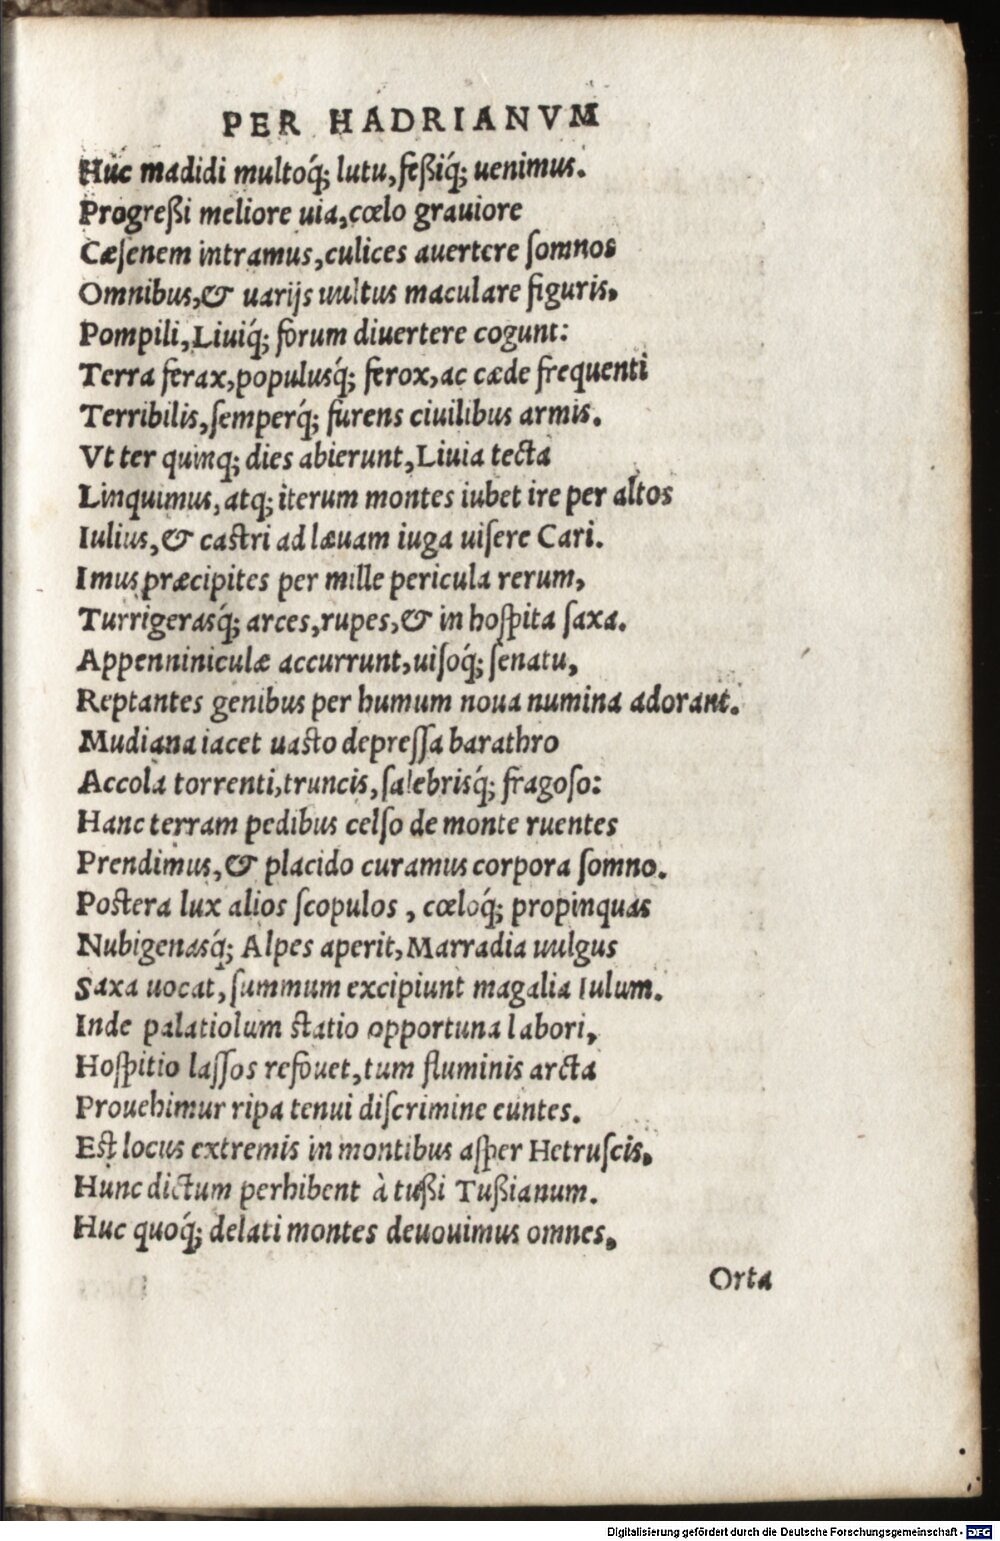 PER HADRIANVM
Huc madidi multoq́; lutu, feßiq́; uenimus.
Progreßi meliore uia, cœlo grauiore
Cæſenem intramus, culices auertere ſomnos
Omnibus, & uarijs uultus maculare figuris.
Pompili, Liuiq́; forum diuertere cogunt:
Terra ferax, populusq́; ferox, ac cæde frequenti
Terribilis, ſemperq́; furens ciuilibus armis.
Vt ter quinq; dies abierunt, Liuia tecta
Linquimus, atq; iterum montes iubet ire per altos
Iulius, & caſtri ad læuam iuga uiſere Cari.
Imus præcipites per mille pericula rerum,
Turrigerasq́; arces, rupes, & in hoſpita ſaxa.
Appenniniculæ accurrunt, uiſoq́; ſenatu,
Reptantes genibus per humum noua numina adorant.
Mudiana iacet uaſto depreſſa barathro
Accola torrenti, truncis, ſalebrisq́; fragoſo:
Hanc terram pedibus celſo de monte ruentes
Prendimus, & placido curamus corpora ſomno.
Poſtera lux alios ſcopulos, cœloq́; propinquas
Nubigenasq́; Alpes aperit, Marradia uulgus
Saxa uocat, ſummum excipiunt magalia Iulum.
Inde palatiolum ſtatio opportuna labori,
Hoſpitio laſſos refouet, tum fluminis arcta
Prouehimur ripa tenui diſcrimine euntes.
Eſt locus extremis in montibus aſper Hetruſcis,
Hunc dictum perhibent à tußi Tußianum.
Huc quoq́; delati montes deuouimus omnes,
Orta
Digitalisierung gefördert durch die Deutsche Forschungsgemeinschaft - DFG